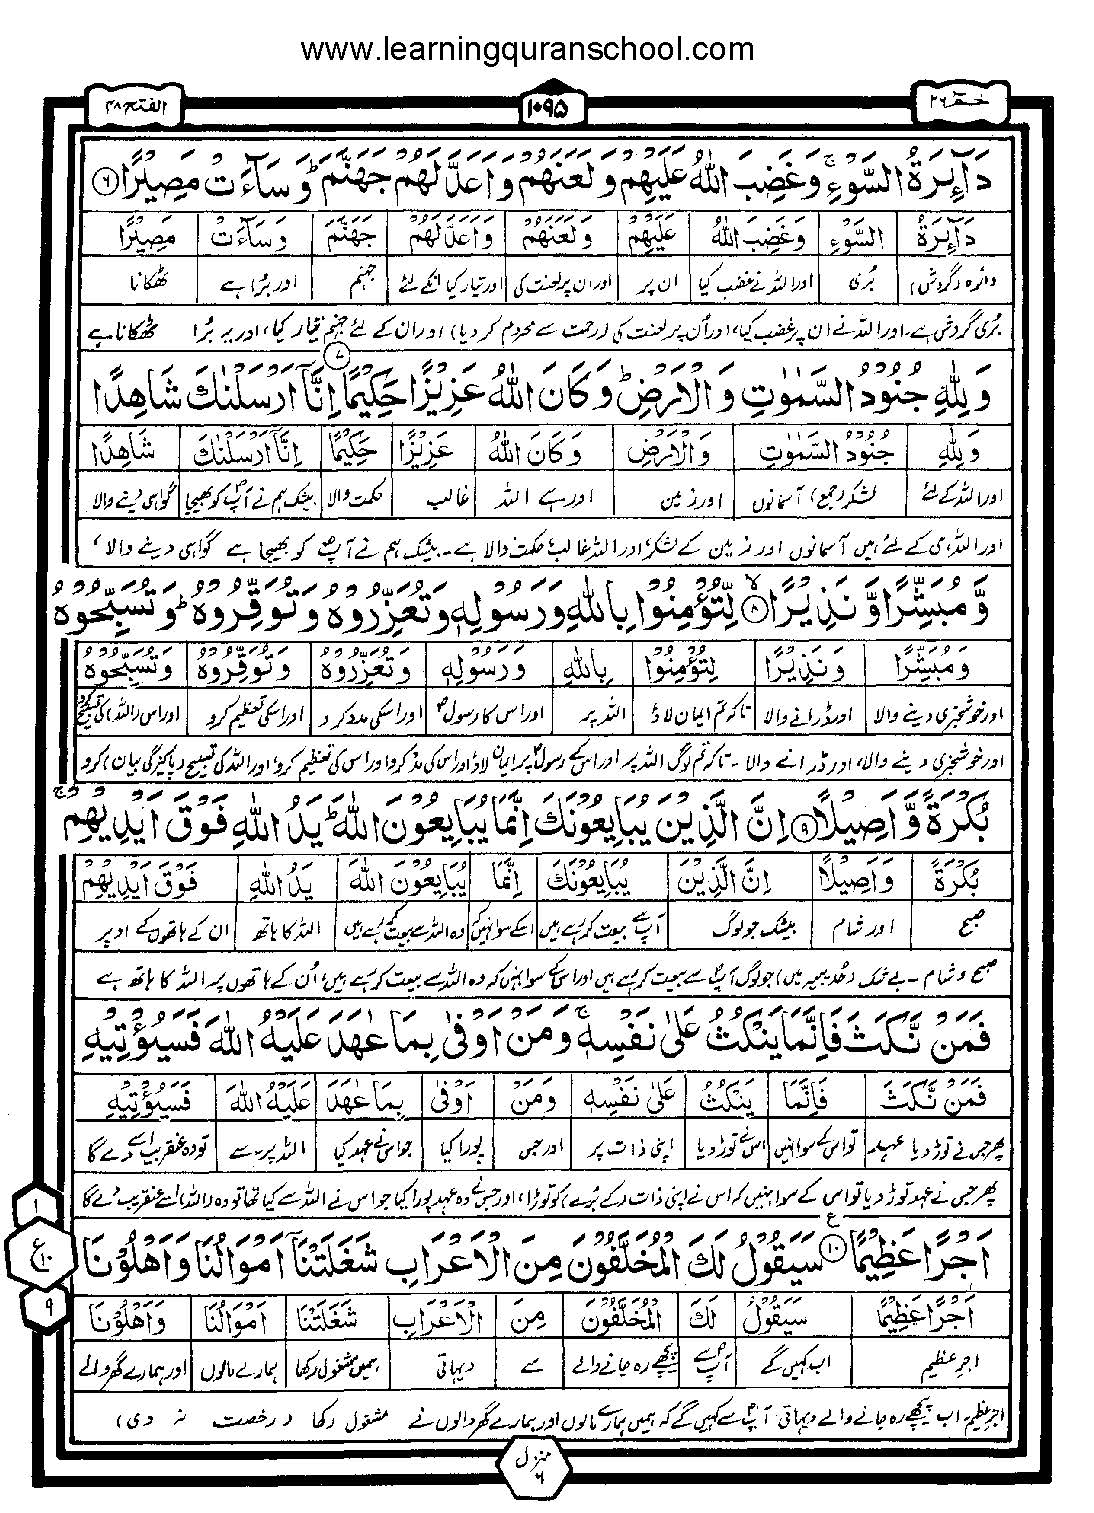 www.learningquranschool.com
الفتح ٤٨
١٠٩٥
حٰمٓ ٢٦
دَآئِرَةُ السَّوْءِ ۚ وَغَضِبَ اللّٰهُ عَلَيْهِمْ وَلَعَنَهُمْ وَاَعَدَّ لَهُمْ جَهَنَّمَ ؕ وَسَآءَتْ مَصِيْرًا ۶
دَآئِرَةُ السَّوْءِ وَغَضِبَ اللّٰهُ عَلَيْهِمْ وَلَعَنَهُمْ وَاَعَدَّ لَهُمْ جَهَنَّمَ وَسَآءَتْ مَصِيْرًا
دائرہ (گردش) بُری اور اللہ نے غضب کیا ان پر اور ان پر لعنت کی اور تیار کیا انکے لئے جہنم اور بُرا ہے ٹھکانا
بُری گردش ہے۔ اور اللہ نے ان پر غضب کیا، اور اُن پر لعنت کی (رحمت سے محروم کر دیا) اور ان کے لئے جہنم تیار کیا، اور یہ بُرا ٹھکانا ہے
وَلِلّٰهِ جُنُوْدُ السَّمٰوٰتِ وَالْاَرْضِ ؕ وَكَانَ اللّٰهُ عَزِيْزًا حَكِيْمًا ۷ اِنَّآ اَرْسَلْنٰكَ شَاهِدًا
وَلِلّٰهِ جُنُوْدُ السَّمٰوٰتِ وَالْاَرْضِ وَكَانَ اللّٰهُ عَزِيْزًا حَكِيْمًا اِنَّآ اَرْسَلْنٰكَ شَاهِدًا
اور اللہ کے لئے لشکر (جمع) آسمانوں اور زمین اور ہے اللہ غالب حکمت والا بیشک ہم نے آپؐ کو بھیجا گواہی دینے والا
اور اللہ ہی کے لئے ہیں آسمانوں اور زمین کے لشکر، اور اللہ غالب، حکمت والا ہے۔ بیشک ہم نے آپؐ کو بھیجا ہے گواہی دینے والا،
وَّمُبَشِّرًا وَّنَذِيْرًا ۸ لِّتُؤْمِنُوْا بِاللّٰهِ وَرَسُوْلِهٖ وَتُعَزِّرُوْهُ وَتُوَقِّرُوْهُ ؕ وَتُسَبِّحُوْهُ
وَمُبَشِّرًا وَنَذِيْرًا لِتُؤْمِنُوْا بِاللّٰهِ وَرَسُوْلِهٖ وَتُعَزِّرُوْهُ وَتُوَقِّرُوْهُ وَتُسَبِّحُوْهُ
اور خوشخبری دینے والا اور ڈرانے والا تاکہ تم ایمان لاؤ اللہ پر اور اس کا رسولؐ اور اسکی مدد کرو اور اسکی تعظیم کرو اور اس (اللہ) کی تسبیح
اور خوشخبری دینے والا، اور ڈرانے والا۔ تاکہ تم لوگ اللہ پر اور اس کے رسولؐ پر ایمان لاؤ اور اس کی مدد کرو اور اس کی تعظیم کرو، اور اللہ کی تسبیح (پاکیزگی بیان) کرو
بُكْرَةً وَّاَصِيْلًا ۹ اِنَّ الَّذِيْنَ يُبَايِعُوْنَكَ اِنَّمَا يُبَايِعُوْنَ اللّٰهَ ؕ يَدُ اللّٰهِ فَوْقَ اَيْدِيْهِمْ ۚ
بُكْرَةً وَاَصِيْلًا اِنَّ الَّذِيْنَ يُبَايِعُوْنَكَ اِنَّمَا يُبَايِعُوْنَ اللّٰهَ يَدُ اللّٰهِ فَوْقَ اَيْدِيْهِمْ
صبح اور شام بیشک جو لوگ آپؐ سے بیعت کر رہے ہیں اسکے سوا نہیں کہ وہ اللہ سے بیعت کر رہے ہیں اللہ کا ہاتھ ان کے ہاتھوں کے اوپر
صبح و شام۔ بے شک (حدیبیہ میں) جو لوگ آپؐ سے بیعت کر رہے ہیں اور اس کے سوا نہیں کہ وہ اللہ سے بیعت کر رہے ہیں، اُن کے ہاتھوں پر اللہ کا ہاتھ ہے
فَمَنْ نَّكَثَ فَاِنَّمَا يَنْكُثُ عَلٰى نَفْسِهٖ ۚ وَمَنْ اَوْفٰى بِمَا عٰهَدَ عَلَيْهُ اللّٰهَ فَسَيُؤْتِيْهِ
فَمَنْ نَّكَثَ فَاِنَّمَا يَنْكُثُ عَلٰى نَفْسِهٖ وَمَنْ اَوْفٰى بِمَا عٰهَدَ عَلَيْهُ اللّٰهَ فَسَيُؤْتِيْهِ
پھر جس نے توڑ دیا عہد تو اس کے سوا نہیں اس نے توڑ دیا اپنی ذات پر اور جس پورا کیا جو اس نے عہد کیا اللہ پر۔سے تو وہ عنقریب اسے دے گا
پھر جس نے عہد توڑ دیا تو اس کے سوا نہیں کہ اس نے اپنی ذات (کے بُرے) کو توڑا، اور جس نے وہ عہد پورا کیا جو اس نے اللہ سے کیا تھا تو وہ (اللہ) اسے عنقریب دے گا
اَجْرًا عَظِيْمًا ۱۰ سَيَقُوْلُ لَكَ الْمُخَلَّفُوْنَ مِنَ الْاَعْرَابِ شَغَلَتْنَآ اَمْوَالُنَا وَاَهْلُوْنَا
اَجْرًا عَظِيْمًا سَيَقُوْلُ لَكَ الْمُخَلَّفُوْنَ مِنَ الْاَعْرَابِ شَغَلَتْنَا اَمْوَالُنَا وَاَهْلُوْنَا
اجرِ عظیم اب کہیں گے آپؐ سے پیچھے رہ جانے والے سے دیہاتی ہمیں مشغول رکھا ہمارے مالوں اور ہمارے گھر والے
اجرِ عظیم۔ اب پیچھے رہ جانے والے دیہاتی آپؐ سے کہیں گے کہ ہمیں ہمارے مالوں اور ہمارے گھر والوں نے مشغول رکھا (رخصت نہ دی)
۱
ع ۱۰
۹
منزل ۶